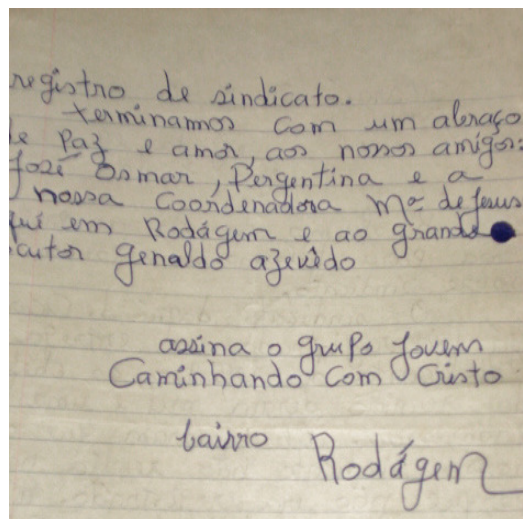 registro de sindicato.
terminamos com um abraço
de Paz e amor, aos nossos amigos:
José Osmar, Pergentina e a
nossa Coordenadora Mª de Jesus
qui em Rodágem e ao grande
cutor Genaldo azevêdo
assina o grupo Jovem
Caminhando Com Cristo
bairro Rodágem